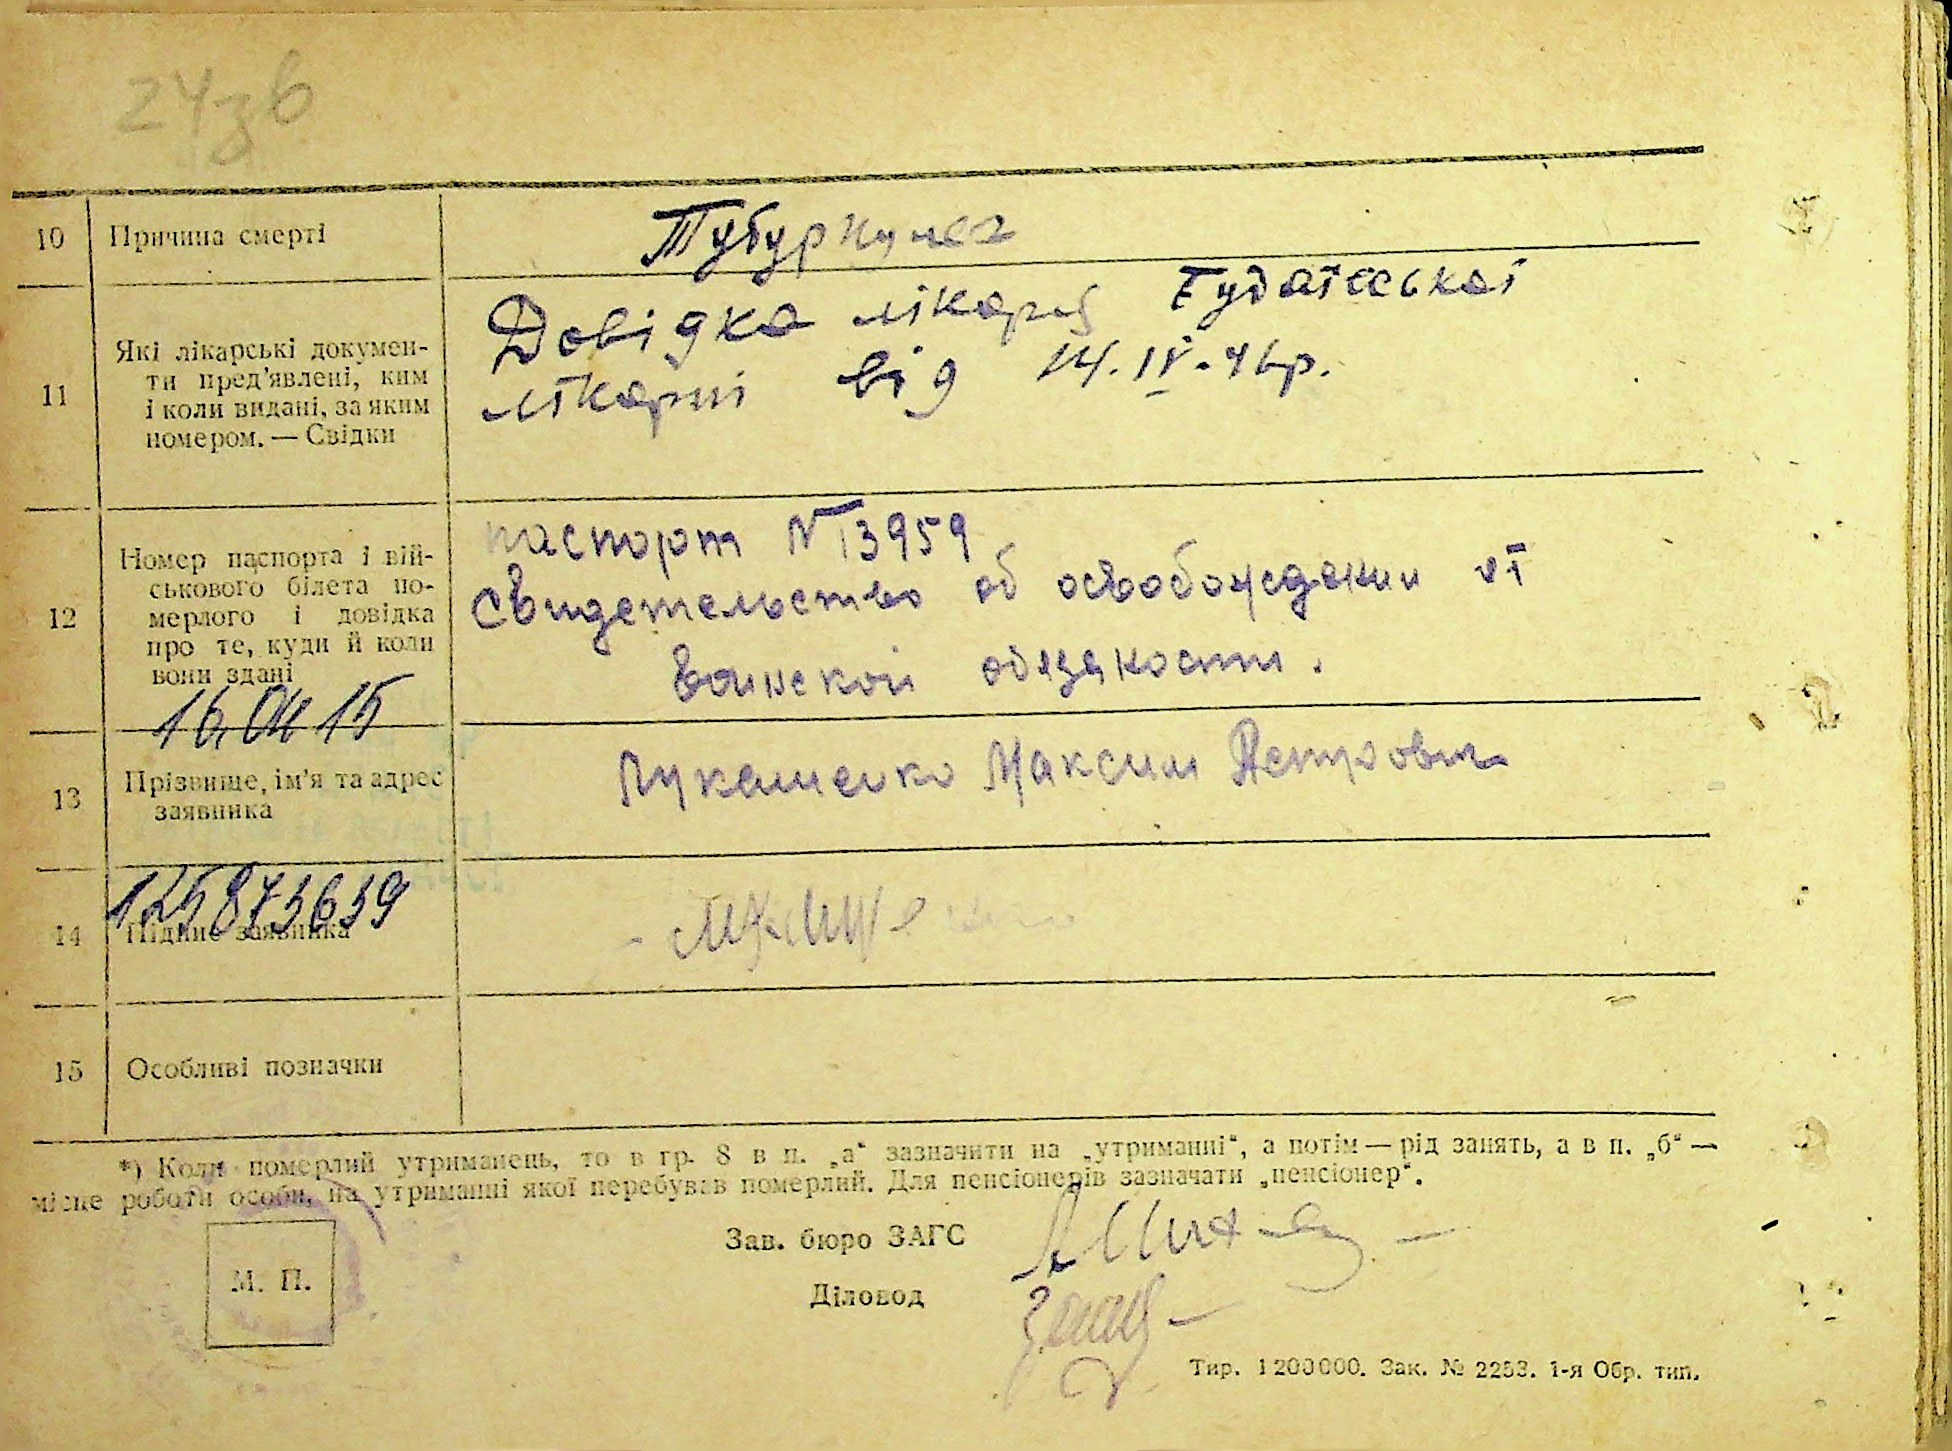 24зв
10 Причина смерті Тубуркулез
11 Які лікарські докумен-
ти пред'явлені, ким
і коли видані, за яким
номером. — Свідки
Довідка лікаря
лікарні від 14.IV.46р.
12 Номер паспорта і вій-
ськового білета по-
мерлого і довідка
про те, куди й коли
вони здані
паспорт № 13959
Свидетельство об освобождении от
воинской обязаности.
16,04 15
13 Прізвище, ім'я та адрес
заявника
Лукашенко Максим Петрович
125873639
14 Підпис заявника
15 Особливі позначки
*) Коли померлий утриманець, то в гр. 8 в п. „а“ зазначити на „утриманні“, а потім — рід занять, а в п. „б“ —
місце роботи особи, на утриманні якої перебував померлий. Для пенсіонерів зазначати „пенсіонер“.
Зав. бюро ЗАГС
М. П.
Діловод
Тир. 1200000. Зак. № 2253. 1-я Обр. тип.